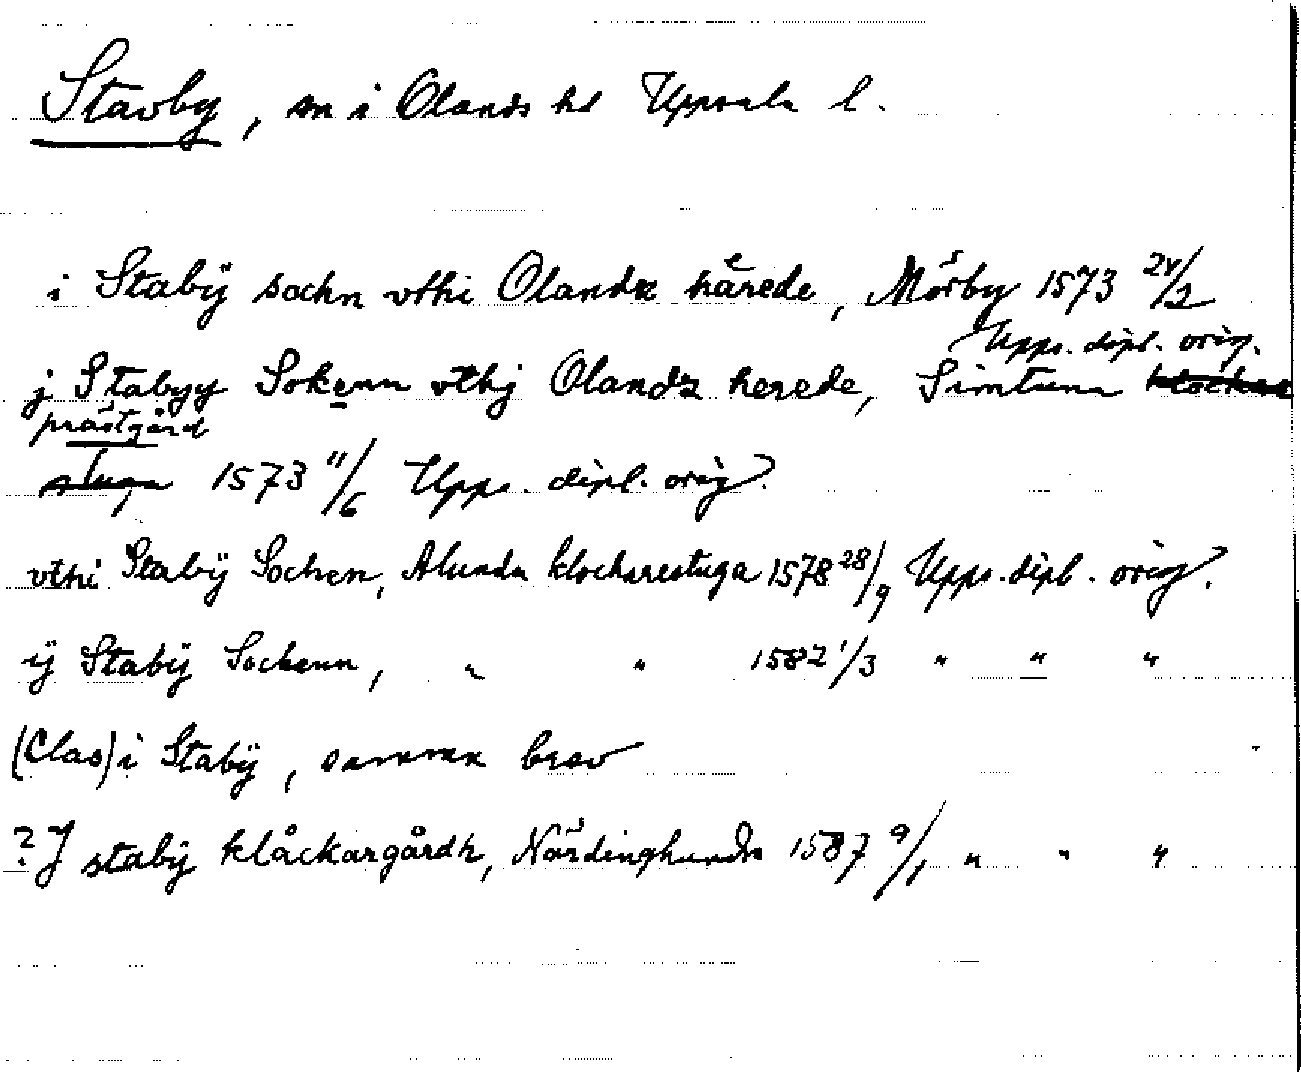 Stavby, sn i Olands hd Uppsala l.
i Stabÿ sochn vthi Olandz härede, Mörby 1573 24/2
Upps. dipl. orig.
j Stabyy Sokenn vthj Olandz herede, Simtuna klockare
prästgård
stuga 1573 11/6 Upps. dipl. orig.
vthi Stabÿ Sochen, Alunda klockarestuga 1578 28/9 Upps. dipl. orig.
ÿ Stabÿ Sockenn, " " 1582 1/3 " " "
(Clas) i Stabÿ, samma brev
? J stabÿ klåckargårdh, Närdinghundra 1587 9/1 " " "